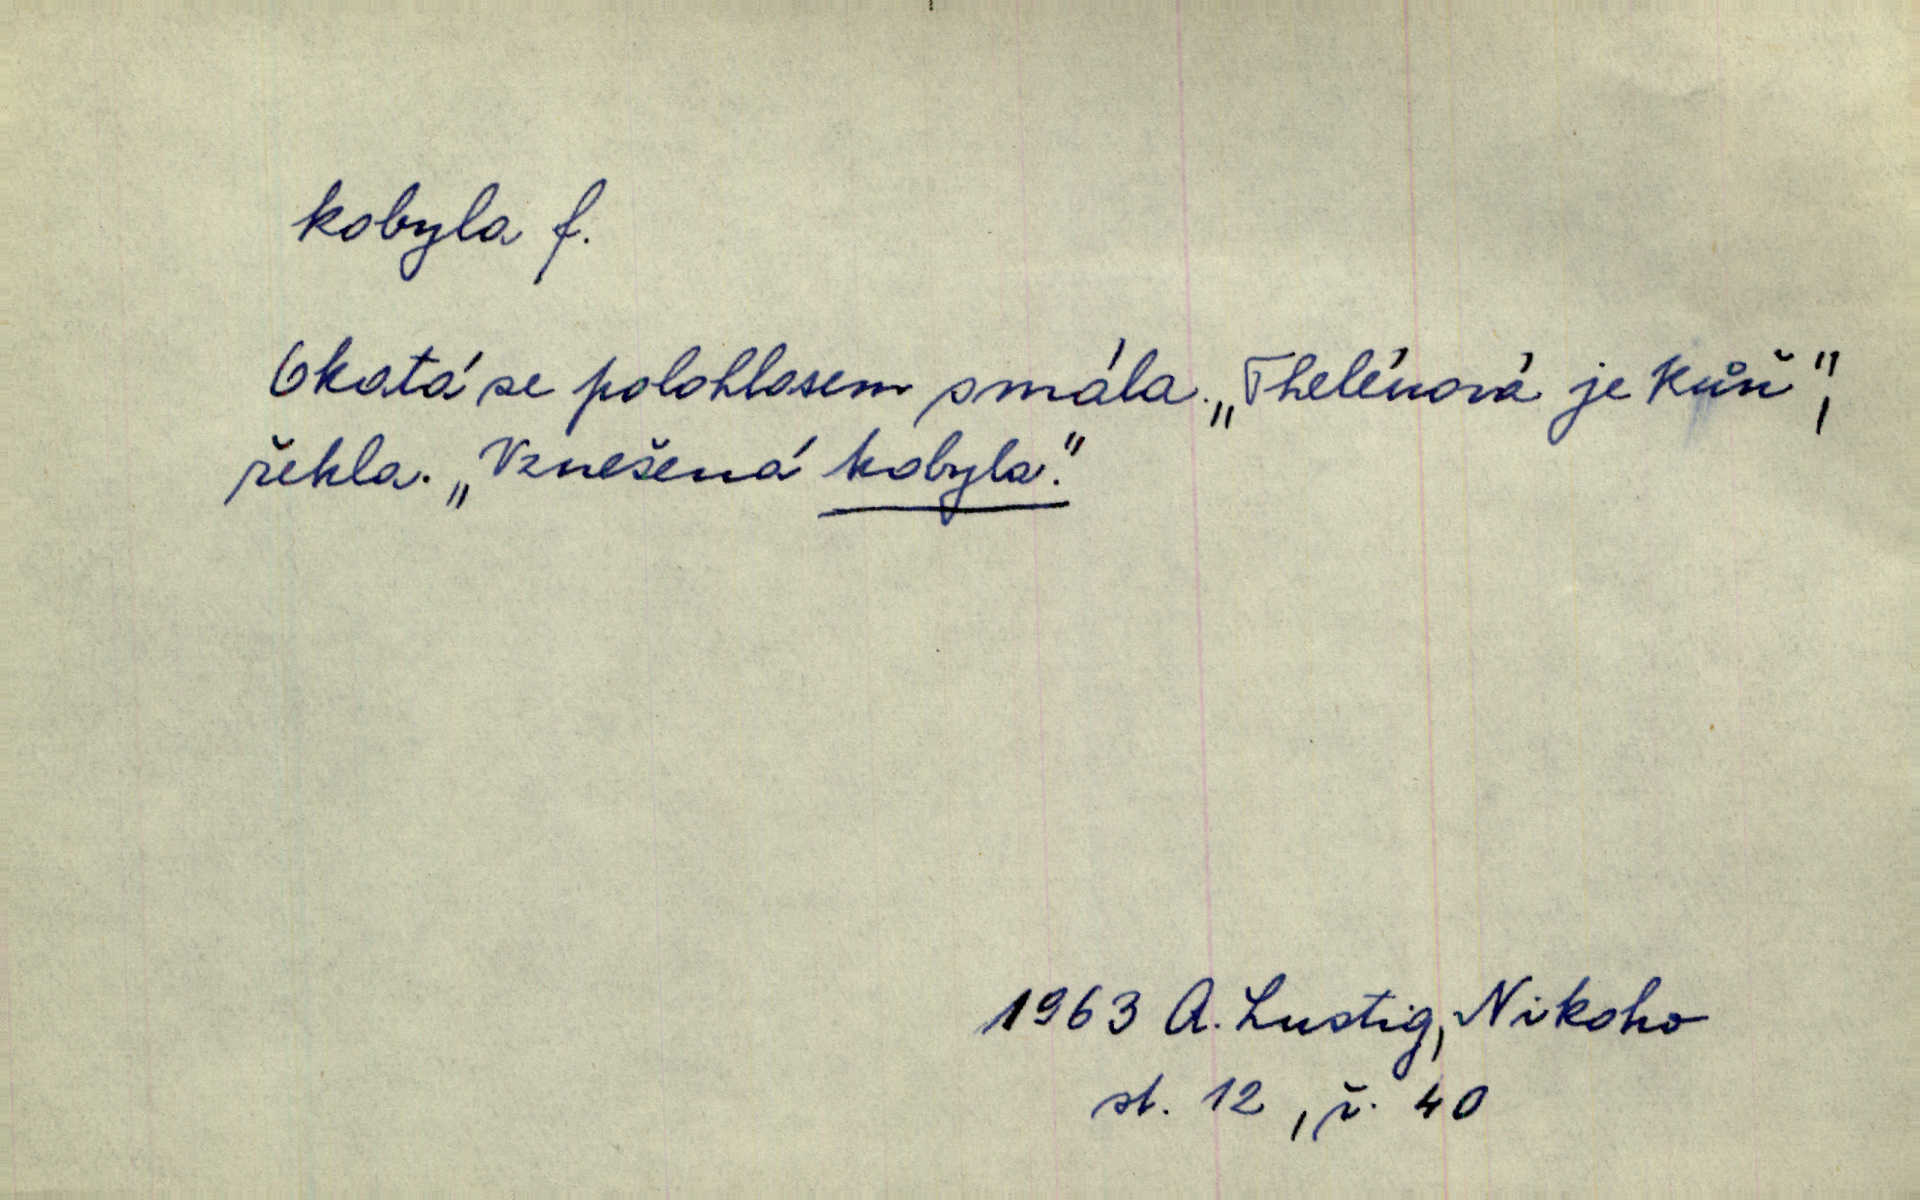 kobyla f.
Okatá se polohlasem smála. „Thelénová je kůň",
řekla. „Vznešená kobyla."
1963 A. Lustig, Nikoho
st. 12, ř. 40